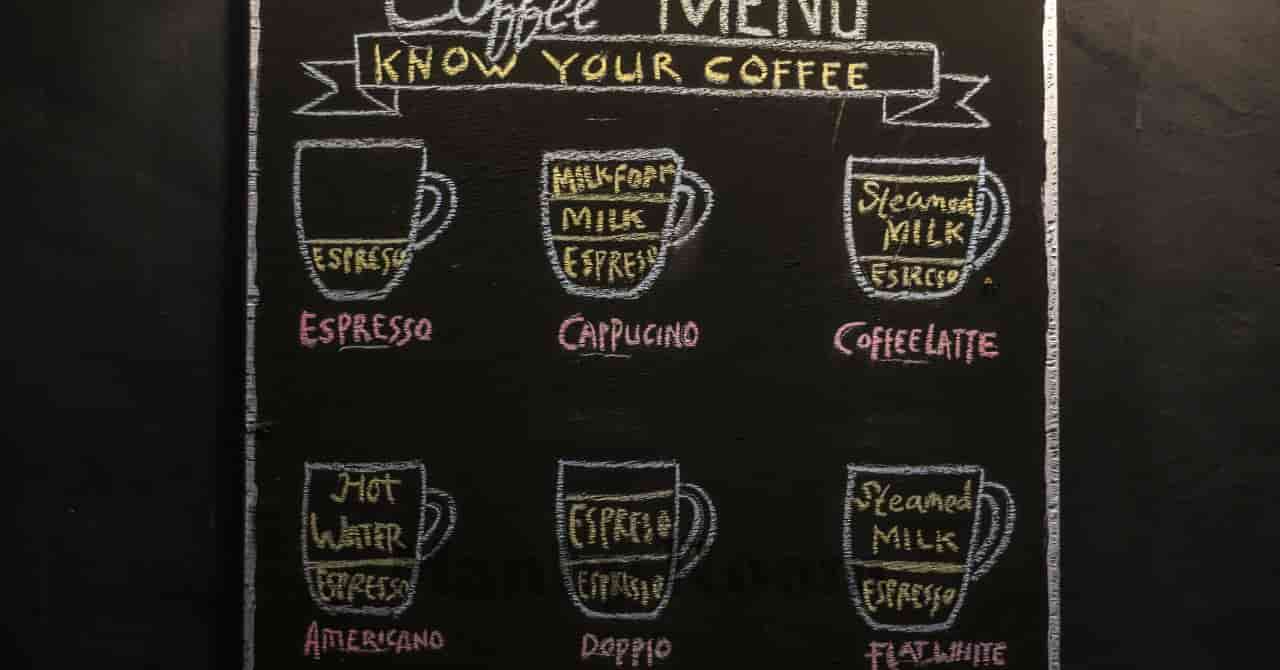 Coffee MENU
KNOW YOUR COFFEE
ESPRESO
ESPRESSO
MILKFOAM
MILK
ESPRESO
CAPPUCINO
Steamed
MILK
ESRESO
COFFEELATTE
Hot
WATER
ESPRESSO
AMERICANO
ESPRESO
ESPRESSO
DOPPIO
Steamed
MILK
ESPRESSO
FLAT WHITE